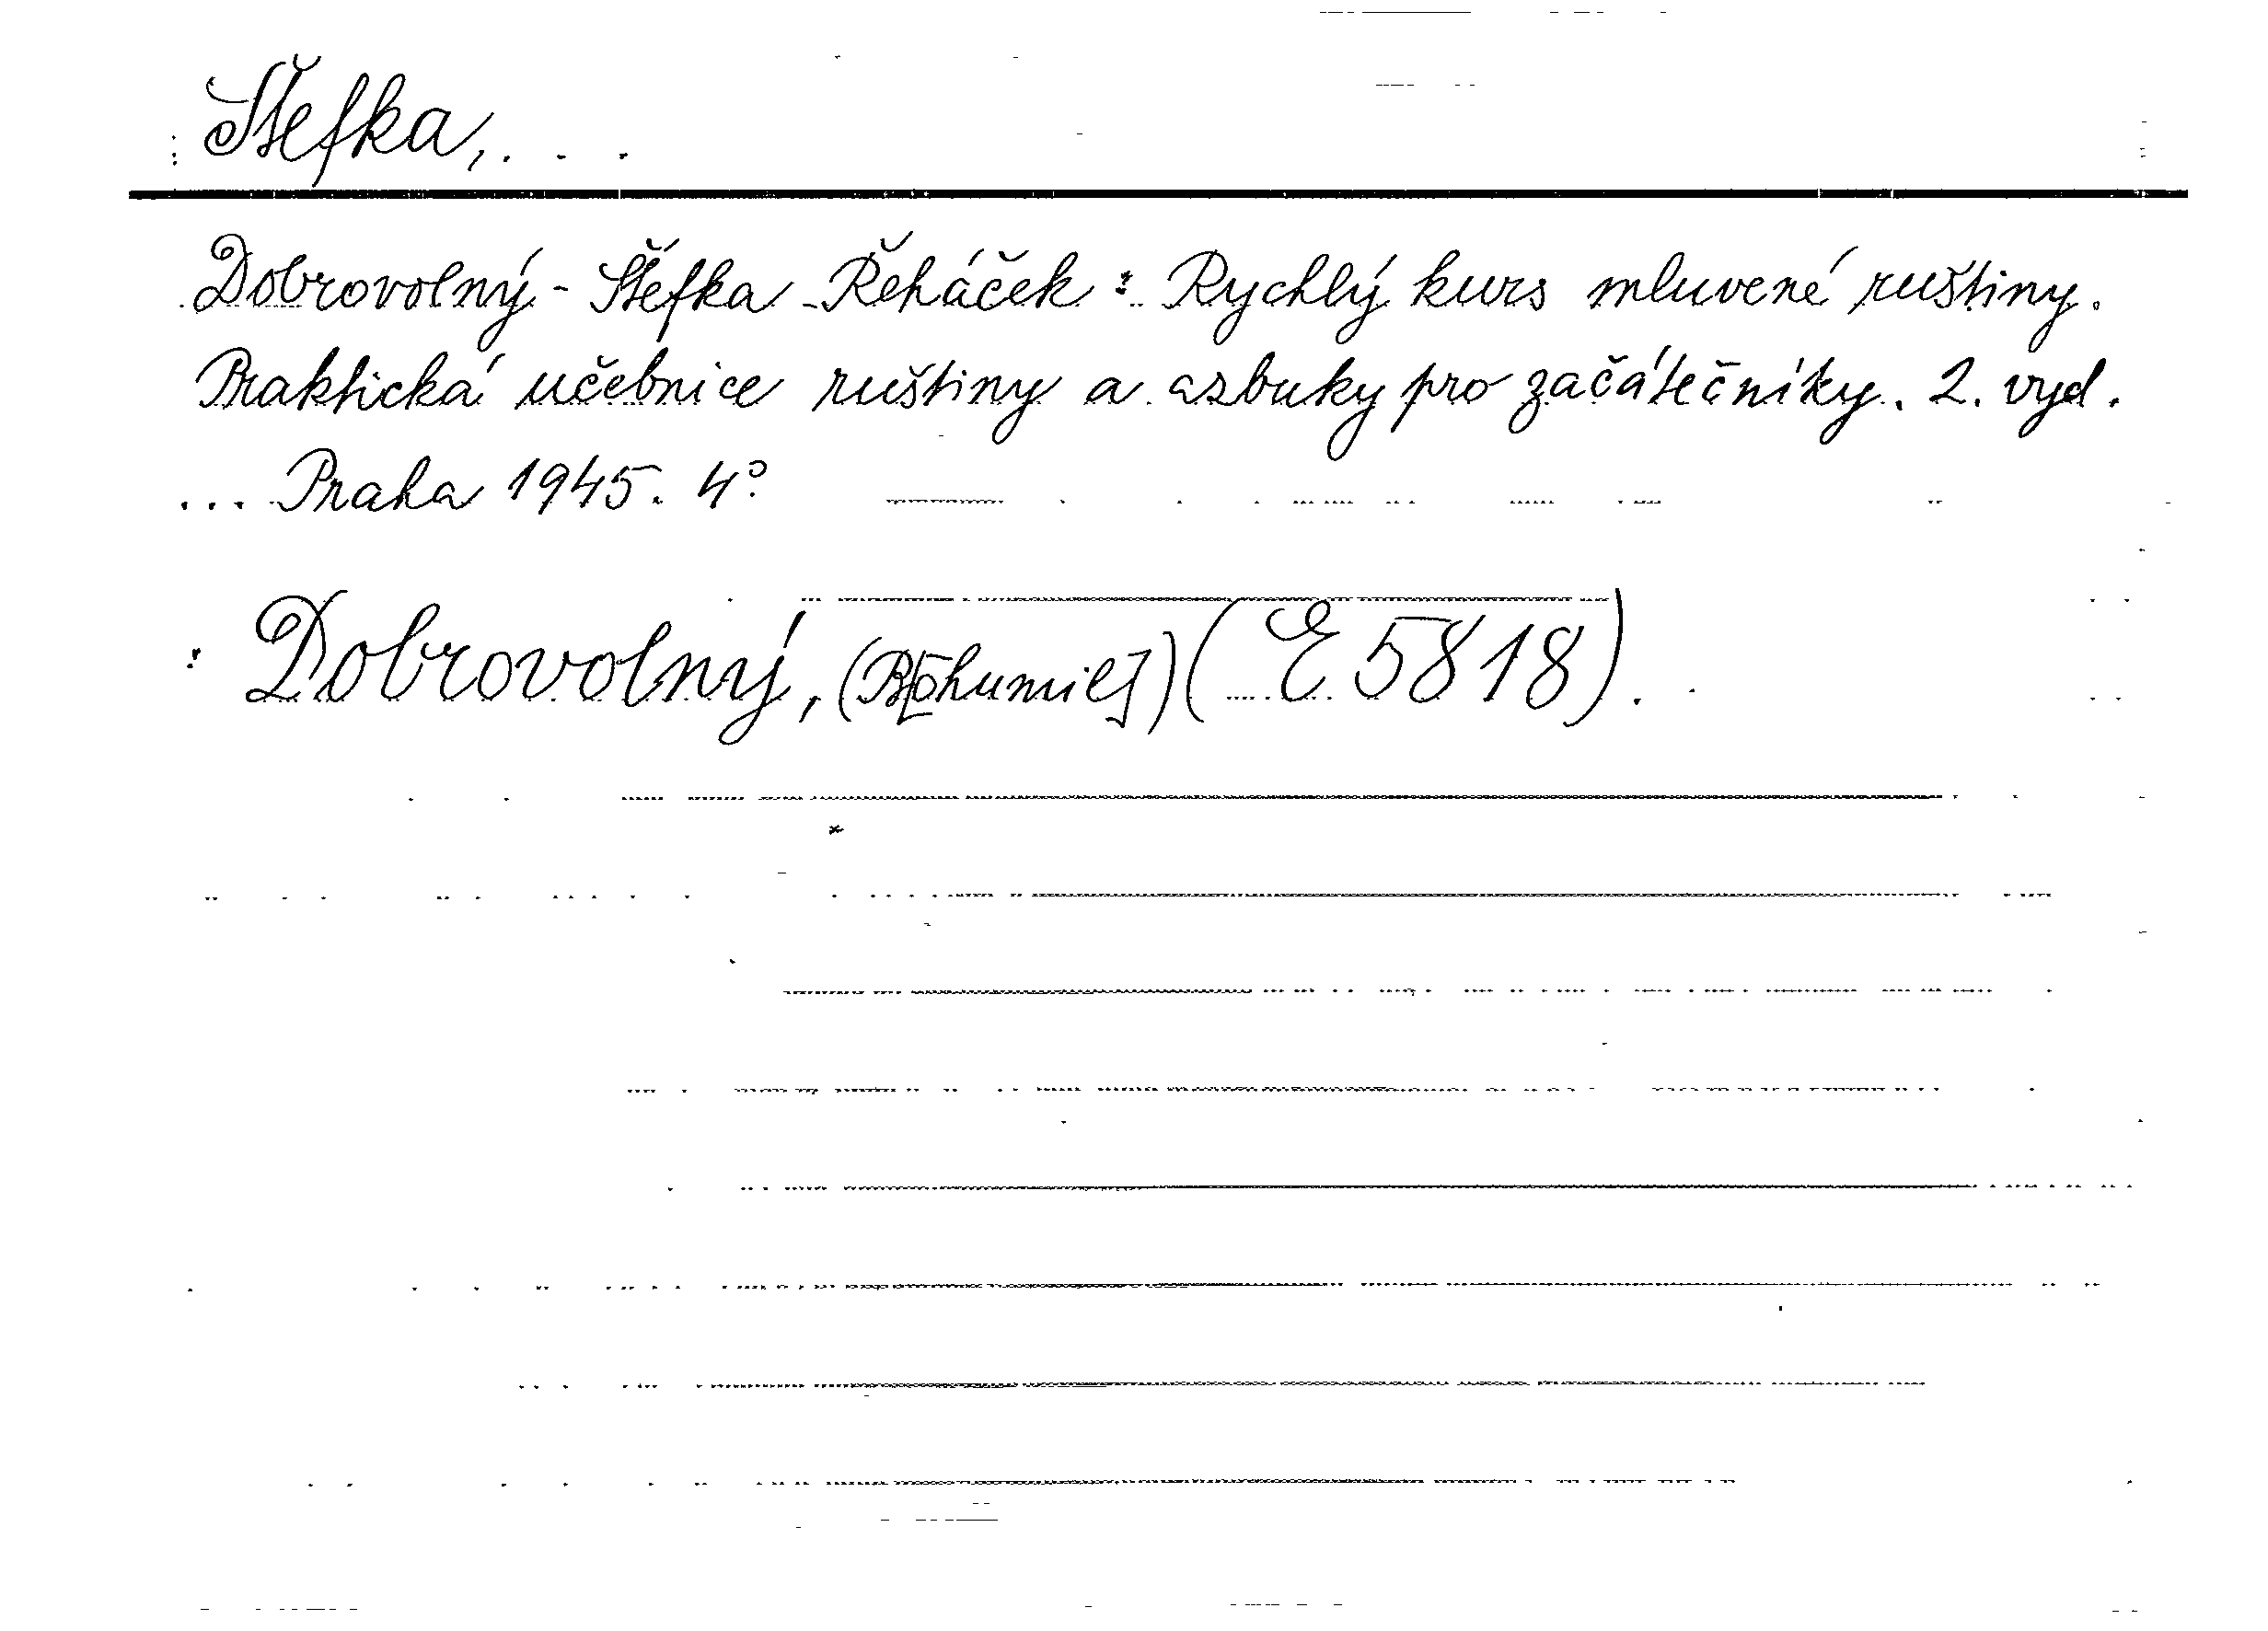 Štefka, . . .
Dobrovolný - Štefka - Řeháček : Rychlý kurs mluvené ruštiny.
Praktická učebnice ruštiny a azbuky pro začátečníky. 2. vyd.
... Praha 1945. 4°.
: Dobrovolný, (B[ohumil]) (E 5818).